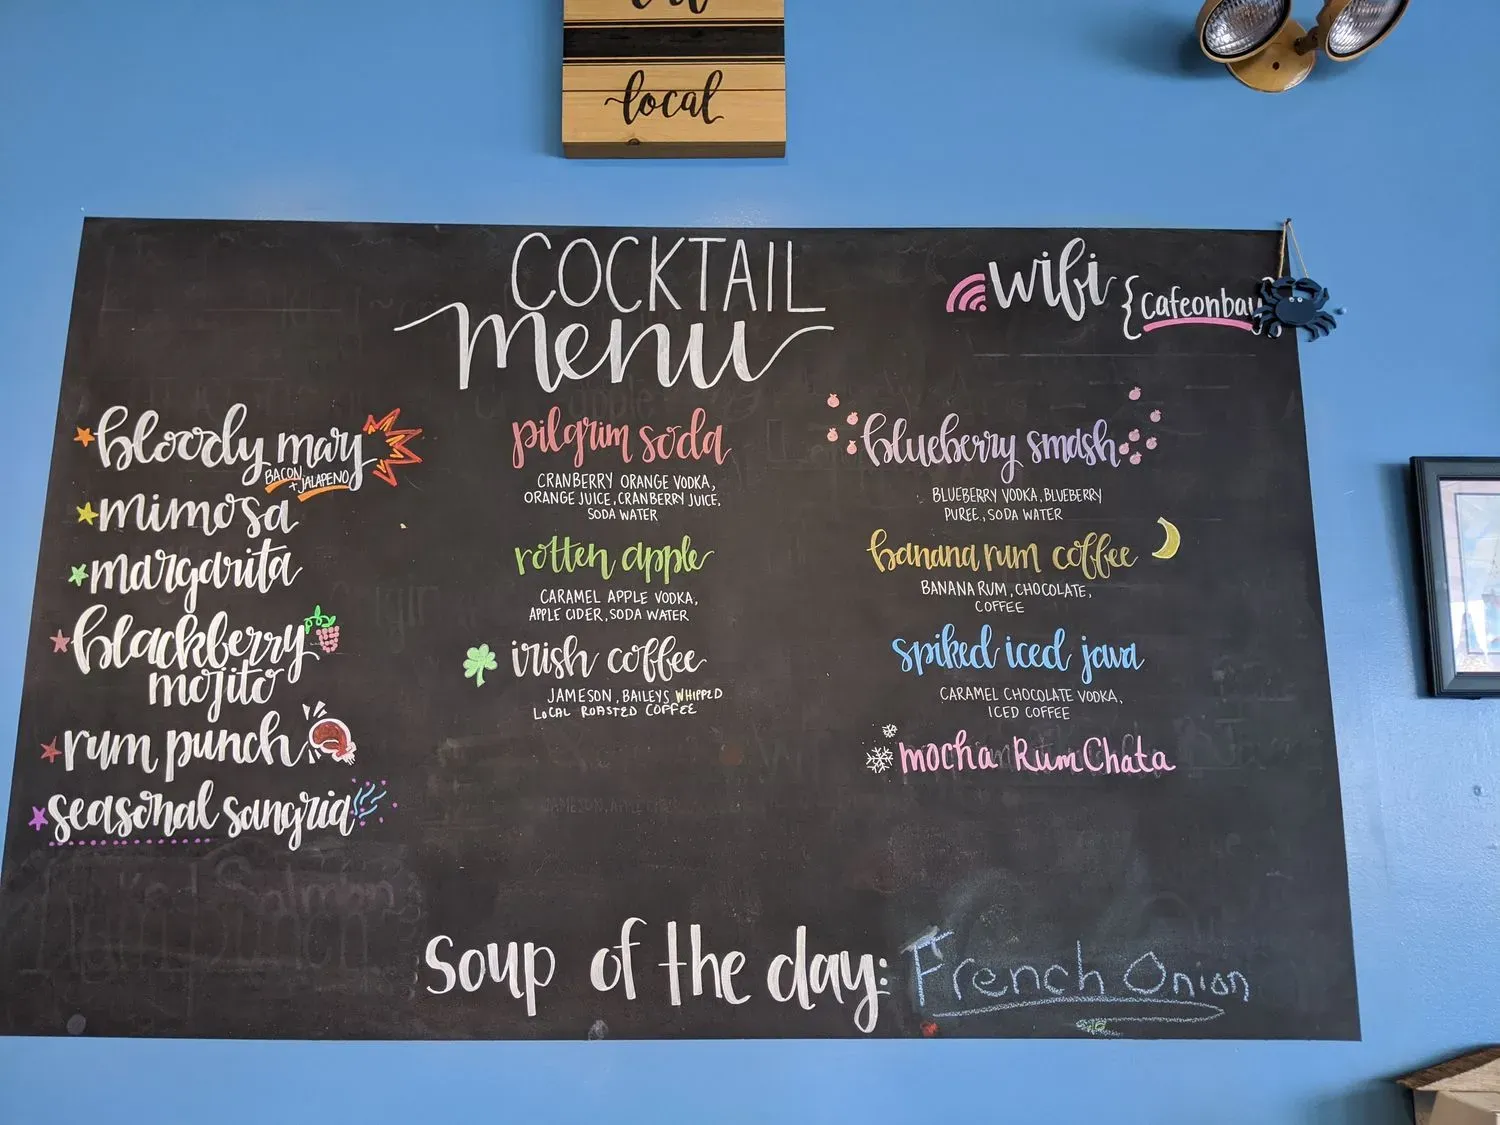 local
COCKTAIL
menu
wifi {Cafeonbay
bloody mary
BACON
+ JALAPENO
mimosa
margarita
blackberry
mojito
rum punch
seasonal sangria
pilgrim soda
CRANBERRY ORANGE VODKA,
ORANGE JUICE, CRANBERRY JUICE,
SODA WATER
rotten apple
CARAMEL APPLE VODKA,
APPLE CIDER, SODA WATER
irish coffee
JAMESON, BAILEYS, WHIPPED
LOCAL ROASTED COFFEE
blueberry smash
BLUEBERRY VODKA, BLUEBERRY
PUREE, SODA WATER
banana rum coffee
BANANA RUM, CHOCOLATE,
COFFEE
spiked iced java
CARAMEL CHOCOLATE VODKA,
ICED COFFEE
mocha RumChata
soup of the day: French Onion